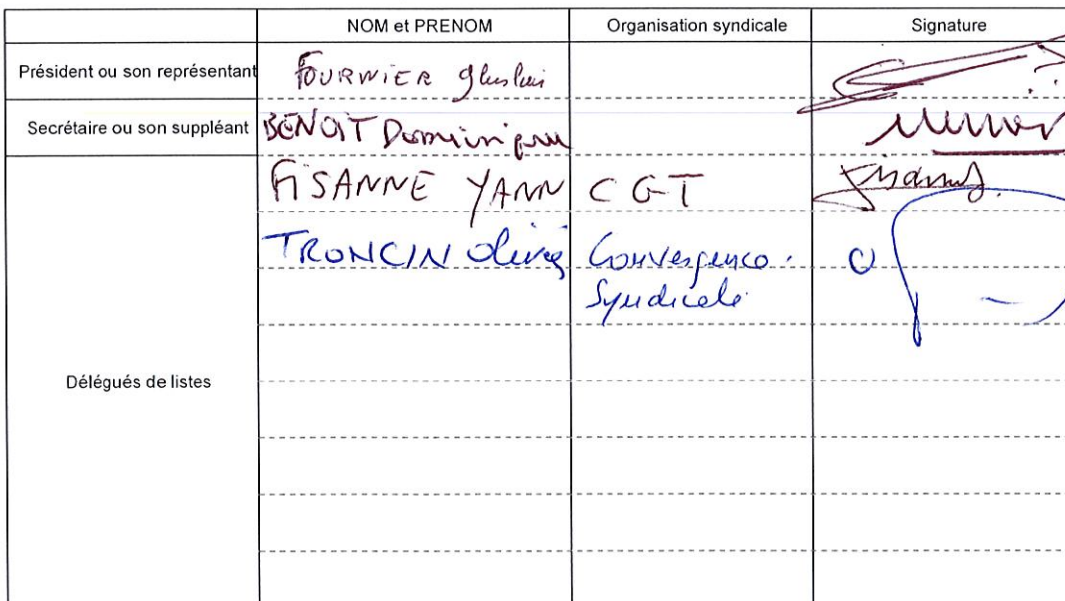 NOM et PRENOM Organisation syndicale Signature
Président ou son représentant FOURNIER Ghislain
Secrétaire ou son suppléant BENOIT Dominique
FISANNE YANN CGT
TRONCIN Olivier Convergence
Syndicale
Délégués de listes